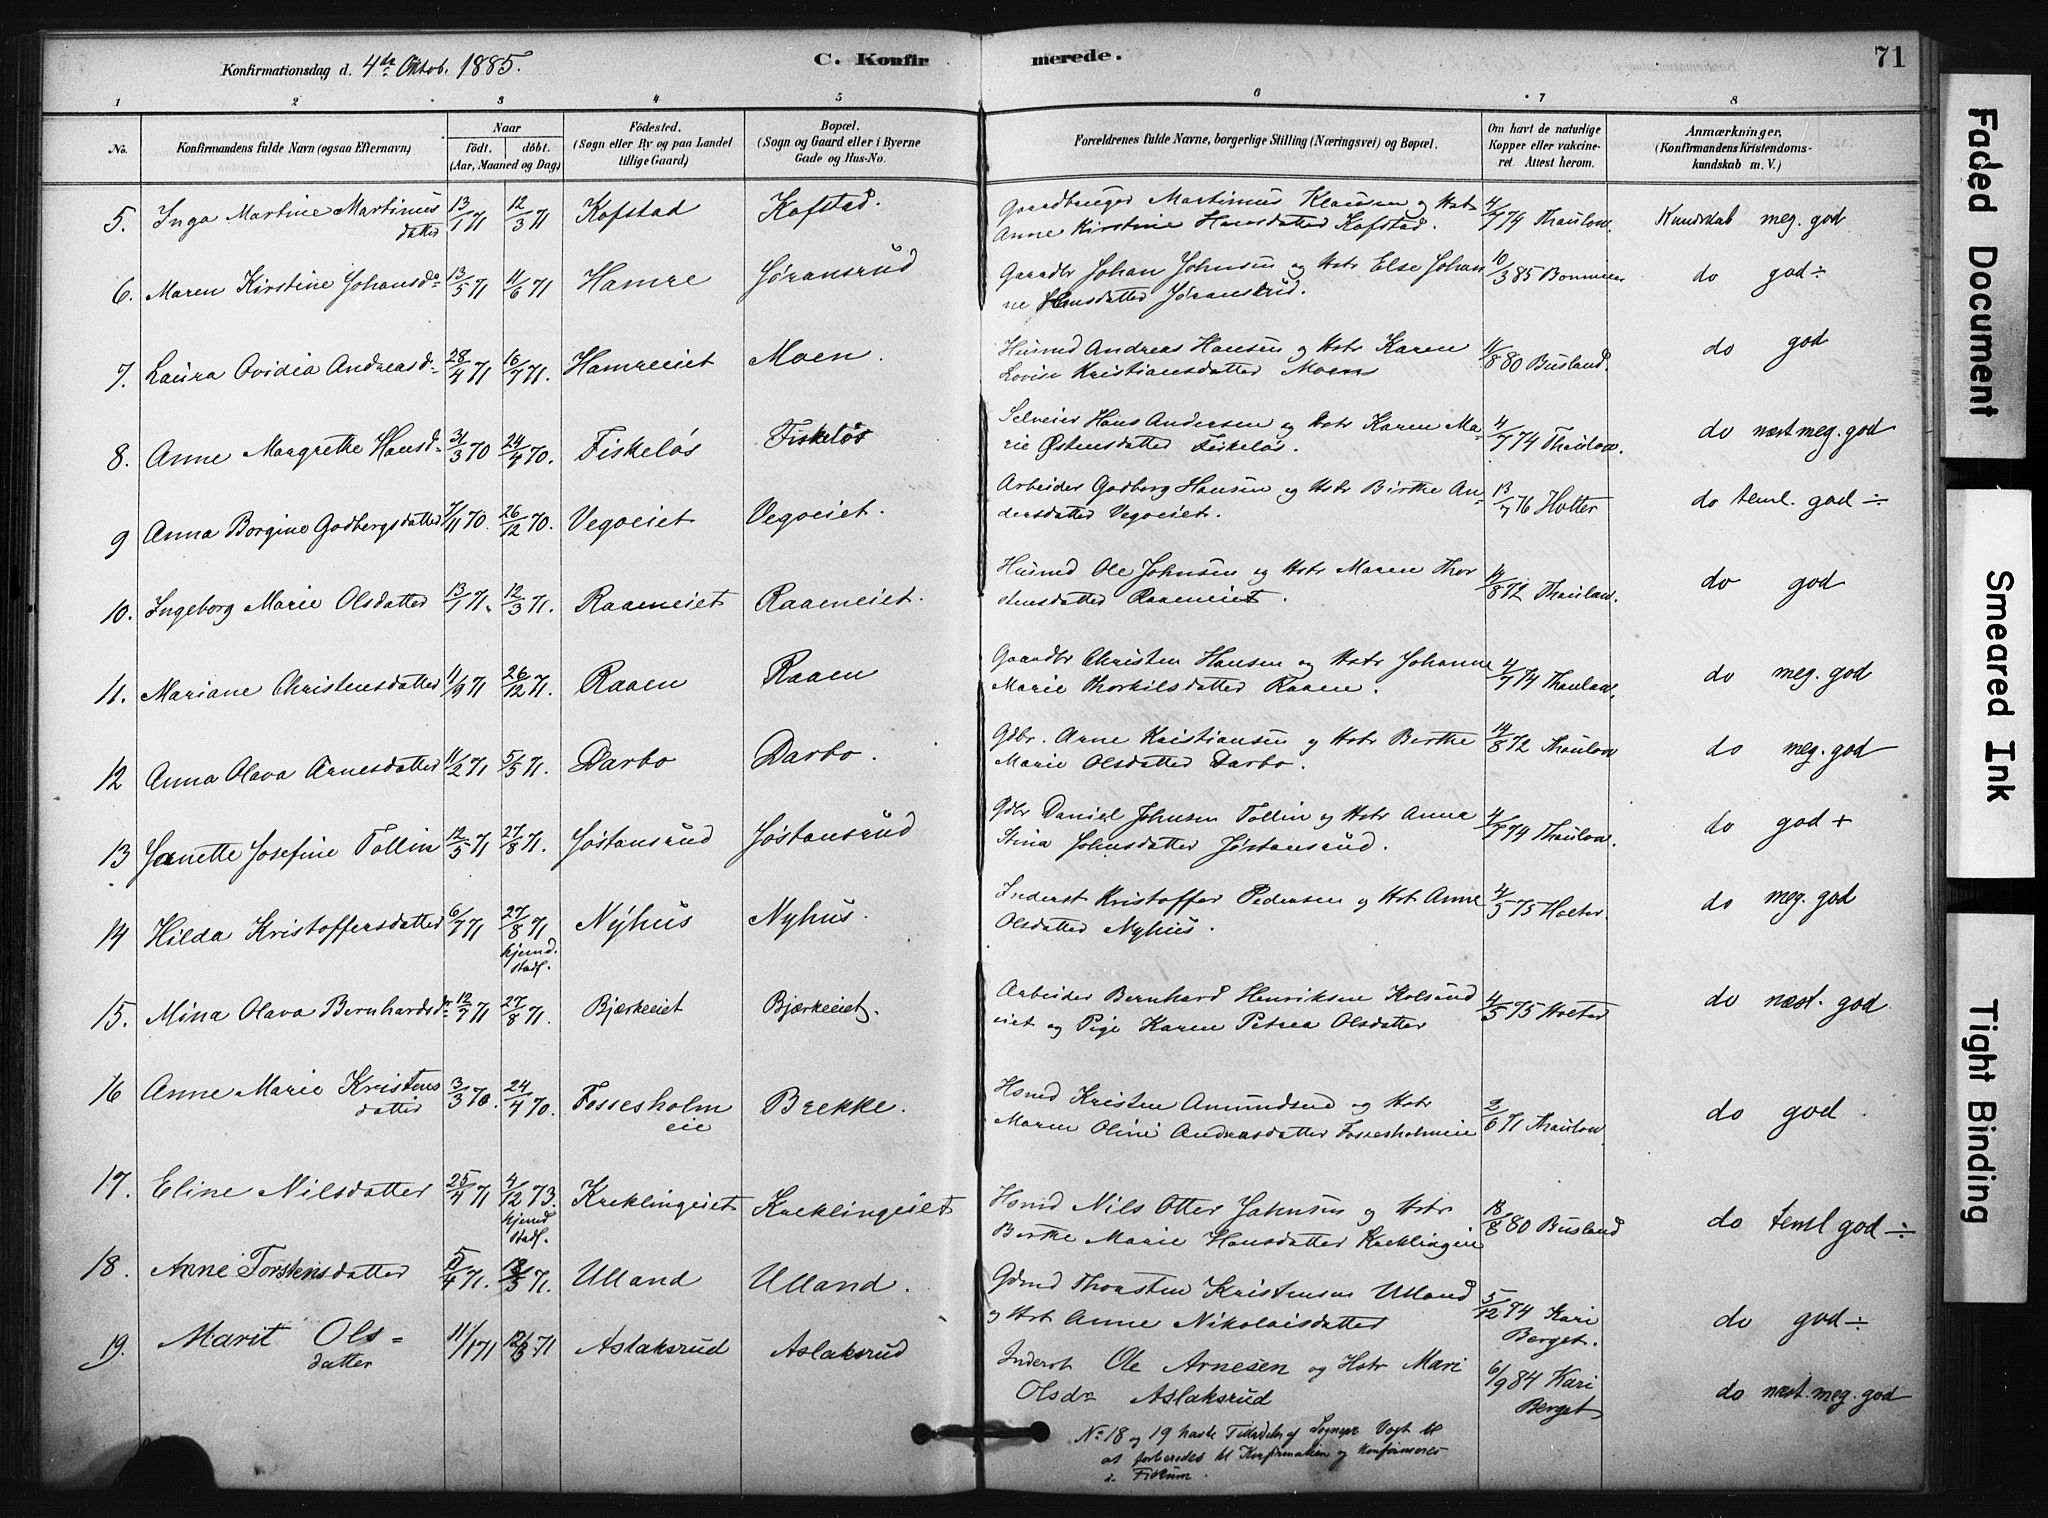 Konfirmationsdag d. 4de Oktob. 1885.
C. Konfirmerede.
71
1 2 3 4 5 6 7 8
No.
Konfirmandens fulde Navn (ogsaa Efternavn)
Naar
Født. døbt.
(Aar, Maaned og Dag)
Fødested.
(Sogn eller By og paa Landet
tillige Gaard)
Bopæl.
(Sogn og Gaard eller i Byerne
Gade og Hus-No.
Forældrenes fulde Navne, borgerlige Stilling (Næringsvei) og Bopæl.
Om havt de naturlige
Kopper eller vakcine-
ret. Attest herom.
Anmærkninger,
(Konfirmandens Kristendoms-
kundskab m. V.)
5. Inga Martine Martinus 13/1 71 12/3 71 Kofstad Kofstad. Gaardbruger Martinus Klausen og Hstr 4/7 74 Thaulow. Kundskab meg. god
datter Anne Kirstine Hansdatter Kofstad.
6. Maren Kirstine Johansdr 13/5 71 11/6 71 Hamre Jøransrud Gaardbr Johan Johnsen og Hstr Else Johan 10/3 85 Bommen do god ÷
ne Hansdatter Jøransrud.
7. Laura Ovidia Andreasd. 28/4 71 16/7 71. Hamreeiet Moen. Husmd Andreas Hansen og Hstr Karen 11/8 80 Busland. do god
Lovise Kristiansdatter Moen
8. Anne Margrethe Hansd. 31/3 70 24/4 70. Fiskeløs Fiskeløs Selveier Hans Andersen og Hstr Karen Ma- 4/7 74 Thaulow. do næst meg. god
rie Østensdatter Fiskeløs.
9 Anna Borgine Godbergsdatter 7/11 70 26/12 70. Vegoeiet Vegoeiet. Arbeider Godberg Hansen og Hstr Birthe An- 13/7 76 Holter do teml. god ÷
dersdatter Vegoeiet.
10. Ingeborg Marie Olsdatter 13/1 71. 12/3 71. Raaeneiet Raaeneiet. Husmd Ole Johnsen og Hstr Maren Thor 14/8 72 Thaulow. do god
stensdatter Raaeneiet.
11. Mariane Christensdatter 11/9 71 26/12 71. Raaen Raaen Gaardbr Christen Hansen og Hstr Johanne 4/7 74 Thaulow. do meg. god
Marie Thorkilsdatter Raaen.
12 Anna Olava Arnesdatter 11/2 71 5/5 71. Darbo Darbo. Gdbr. Arne Kristiansen og Hstr Berthe 14/8 72 Thaulow do meg. god
Marie Olsdatter Darbo.
13 Janette Josefine Tollin 12/5 71 27/8 71. Jøstansrud Jøstansrud Gdbr Daniel Johnsen Tollin og Hstr Anna 4/7 74 Thaulow. do god +
Stina Johnsdatter Jøstansrud.
14 Hilda Kristoffersdatter 6/7 71 27/8 71 Nyhus Nyhus. Inderst Kristoffer Pedersen og Hst Anne 4/5 75 Holter. do meg. god
hjemd. Olsdatter Nyhus.
stadf.
15. Mina Olava Bernhardsdr 12/7 71 27/8 71. Bjærkeeiet Bjærkeeiet. Arbeider Bernhard Henriksen Kolsrud 4/5 75 Holter do næst. god
eiet og Pige Karen Petrea Olsdatter
16 Anne Marie Kristens 3/3 70. 24/4 70. Fossesholm Brekke. Hsmd Kristen Amundsen og Hstr 2/6 71 Thaulow. do god.
datter eie Maren Oline Andreasdatter Fossesholmeie
17. Eline Nilsdatter 25/4 71 4/12 73. Kreklingeiet Kreklingeiet Hsmd Nils Otter Johnsen og Hstr 18/8 80 Busland do teml god ÷
hjemd Berthe Marie Hansdatter Kreklingeie
stadf.
18. Anne Torstensdatter 5/4 71. 18/5 71. Ulland Ulland. Gdmd Thorsten Kristensen Ulland 5/12 74 Kari do god ÷
og Hst Anne Nikolaisdatter Berget.
19. Marit Ols= 11/1 71 12/3 71 Aslaksrud Aslaksrud Inderst Ole Arnesen og Hstr Mari 6/9 84 Kari do næst. meg. god
datter Olsdr Aslaksrud Berget
No 18 og 19 havde Tilladelse af Sognepr Vogt til
at forberedes til Konfirmation og konfirmeres
i Fiskum.
Faded Document
Smeared Ink
Tight Binding